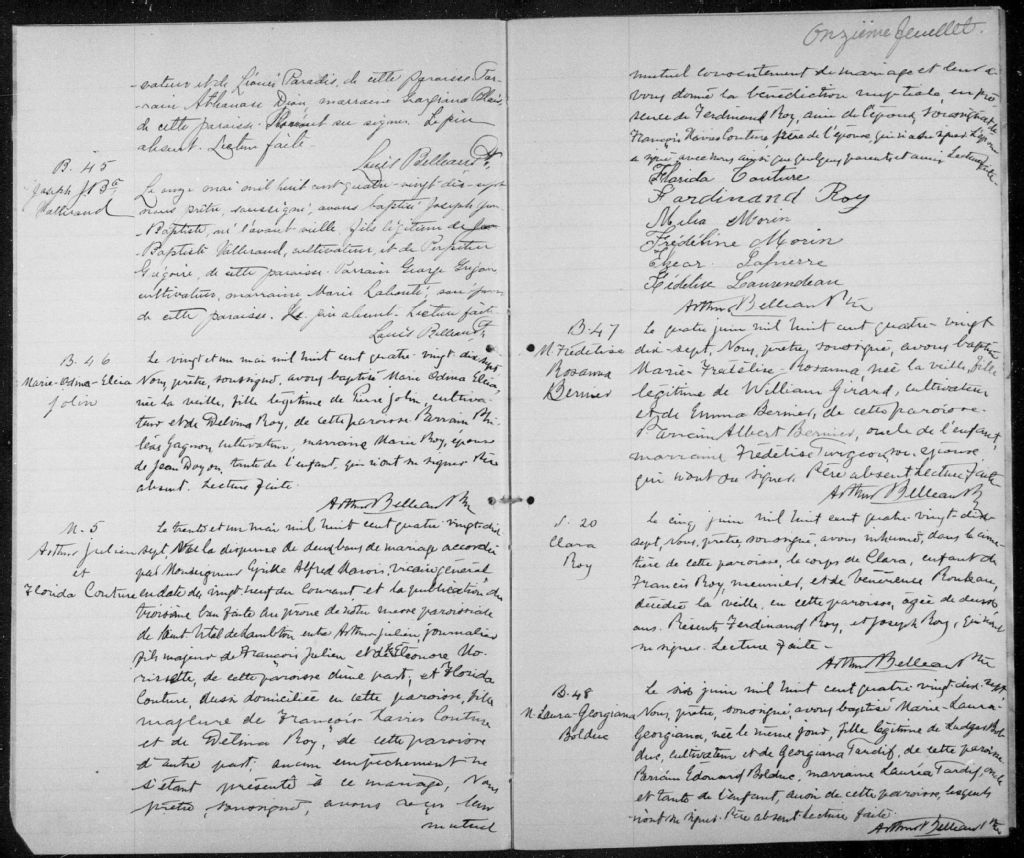 -vateur et de Léonie Paradis, de cette paroisse Par-
rain Athanase Dion, marraine Georgiana Blais
de cette paroisse. su signer. Le père
absent. Lecture faite.
Louis Belleau Ptr
B. 45
Joseph J. Bte
Vallerand
Le onze mai mil huit cent quatre-vingt-dix-sept
nous prêtre, soussigné, avons baptisé Joseph Jean
Baptiste, né l'avant veille, fils légitime de Jean
Baptiste Vallerand, cultivateur, et de Perpétue
Grégoire, de cette paroisse. Parrain George
cultivateur, marraine Marie
de cette paroisse. Le père absent. Lecture faite
Louis Belleau Ptr
B. 46
Marie-Odina-Eléza
Jolin
Le vingt et un mai mil huit cent quatre-vingt dix sept
Nous, prêtre, soussigné, avons baptisé Marie Odina Eléza,
née la veille, fille légitime de Pierre Jolin, cultiva-
teur et de Delvina Roy, de cette paroisse Parrain Phi-
léas Gagnon, cultivateur, marraine Marie Roy, épouse
de Jean Doyon, tante de l'enfant, qui n'ont su signer Père
absent. Lecture faite.
Arthur Belleau Ptre
M. 5
Arthur Julien
et
Florida Couture
Le trente et un mai mil huit cent quatre-vingt-dix
sept, Vu la dispense de deux bans de mariage accordée
par Monseigneur Cyrille Alfred Marois, vicaire général
en date du vingt neuf du courant et la publication du
troisième ban faite au prône de notre messe paroissiale
de Saint Vital de Lambton entre Arthur Julien, journalier
fils majeur de François Julien et de Eléonore Mo-
rissette, de cette paroisse d'une part, et Florida
Couture, aussi domiciliée en cette paroisse, fille
majeure de François Xavier Couture
et de Délima Roy, de cette paroisse
d'autre part; aucun empêchement ne
s'étant présenté à ce mariage, Nous
prêtre, soussigné, avons reçu leur
mutuel
Onzième feuillet.
mutuel consentement de mariage et leur a-
vons donné la bénédiction nuptiale, en pré-
sence de Ferdinand Roy, ami de l'époux, soussigné et de
François Xavier Couture, père de l'épouse, qui n'a su signer. L'épouse
a signé avec nous ainsi que quelques parents et amis. Lecture faite.
Florida Couture
Ferdinand Roy
Mélia Morin
Frédéline Morin
Lapierre
Fédélise Laurendeau
Arthur Belleau Ptre
B. 47
M. Frédélise
Rosanna
Bernier
Le quatre juin mil huit cent quatre-vingt
dix-sept, Nous, prêtre, soussigné, avons baptisé
Marie-Frédélise-Rosanna née la veille, fille
légitime de William Girard, cultivateur
et de Emma Bernier, de cette paroisse.
Parrain Albert Bernier, oncle de l'enfant,
marraine Frédélise Turgeon, son épouse,
qui n'ont su signer. Père absent Lecture faite
Arthur Belleau Ptre
S. 20
Clara
Roy
Le cinq juin mil huit cent quatre-vingt dix-
sept, Nous, prêtre, soussigné, avons inhumé, dans le cime-
tière de cette paroisse, le corps de Clara, enfant de
Francis Roy, meunier, et de Vénéreuse Rouleau,
décédée la veille, en cette paroisse, âgée de deux
ans. Présents Ferdinand Roy, et Joseph Roy, qui n'ont
su signer. Lecture faite.
Arthur Belleau Ptre
B. 48
M. Laura-Georgiana
Bolduc
Le six juin mil huit cent quatre vingt dix-sept
Nous, prêtre, soussigné, avons baptisé Marie-Laura-
Georgiana, née le même jour, fille légitime de Ludger Bol-
duc, cultivateur et de Georgiana Tardif, de cette paroisse
Parrain Edouard Bolduc, marraine Lauréa Tardif, oncle
et tante de l'enfant, aussi de cette paroisse, lesquels
n'ont su signer. Père absent Lecture faite.
Arthur Belleau Ptre